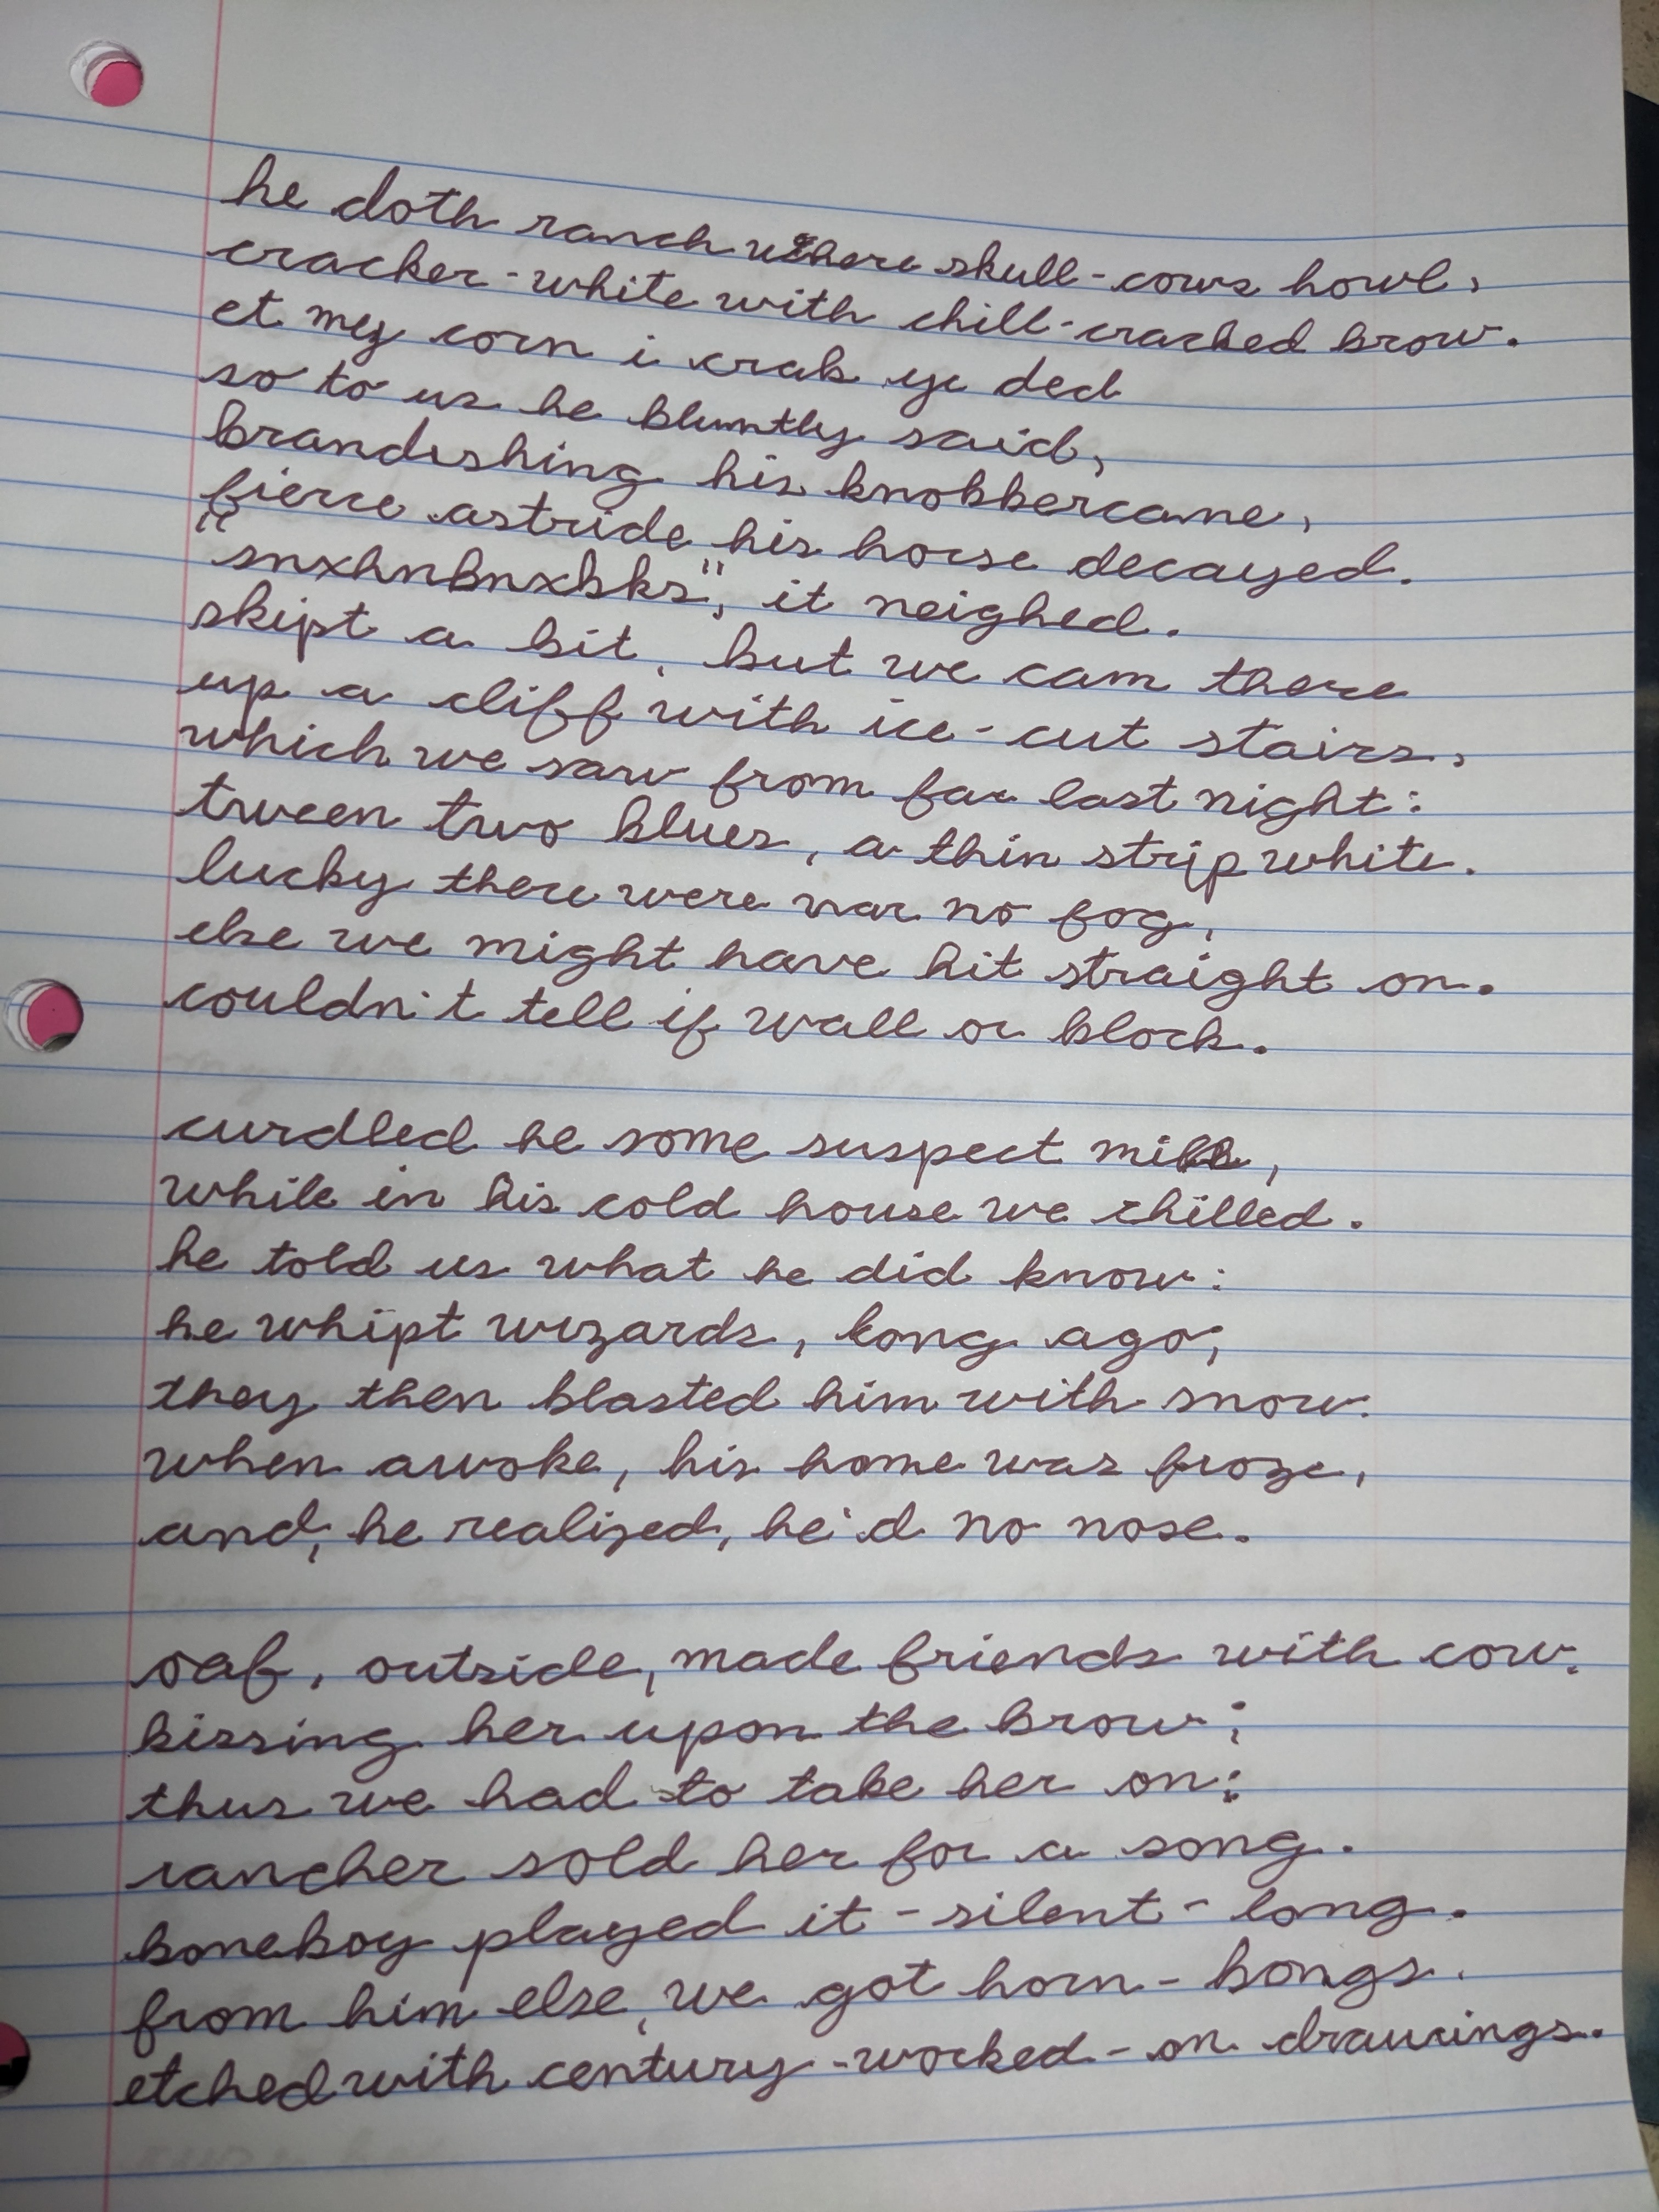 he doth ranch where skull-cows howl,
cracker-white with chill-cracked brow.
et mey corn i crak ye ded
so to us he bluntly said,
brandishing his knobbercane,
fierce astride his horse decayed.
"snxhnbnxbks", it neighed.
skipt a bit, but we cam there
up a cliff with ice-cut stairs,
which we saw from far last night:
tween two blues, a thin strip white.
lucky there were nar no fog,
else we might have hit straight on.
couldn't tell if wall or block.
curdled he some suspect milk,
while in his cold house we chilled.
he told us what he did know:
he whipt wizards, long ago;
they then blasted him with snow.
when awoke, his home was froze,
and, he realized, he'd no nose.
oaf, outside, made friends with cow,
kissing her upon the brow;
thus we had to take her on:
rancher sold her for a song.
boneboy played it - silent - long.
from him else, we got horn-bongs,
etched with century-worked-on drawings.